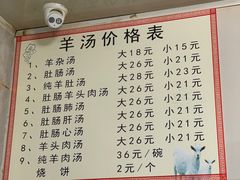 羊汤价格表
1、羊杂汤 大18元 小15元
2、肚肠汤 大26元 小21元
3、纯羊肚汤 大26元 小21元
4、肚肠羊头肉汤 大28元 小23元
5、肚肠肺汤 大26元 小21元
6、肚肠肝汤 大26元 小21元
7、肚肠心汤 大26元 小21元
8、羊头肉汤 大26元 小21元
9、纯羊肉汤 36元/碗
烧饼 2元/个